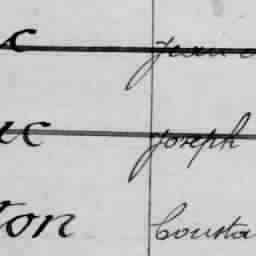 c
uc Joseph
ton Consta